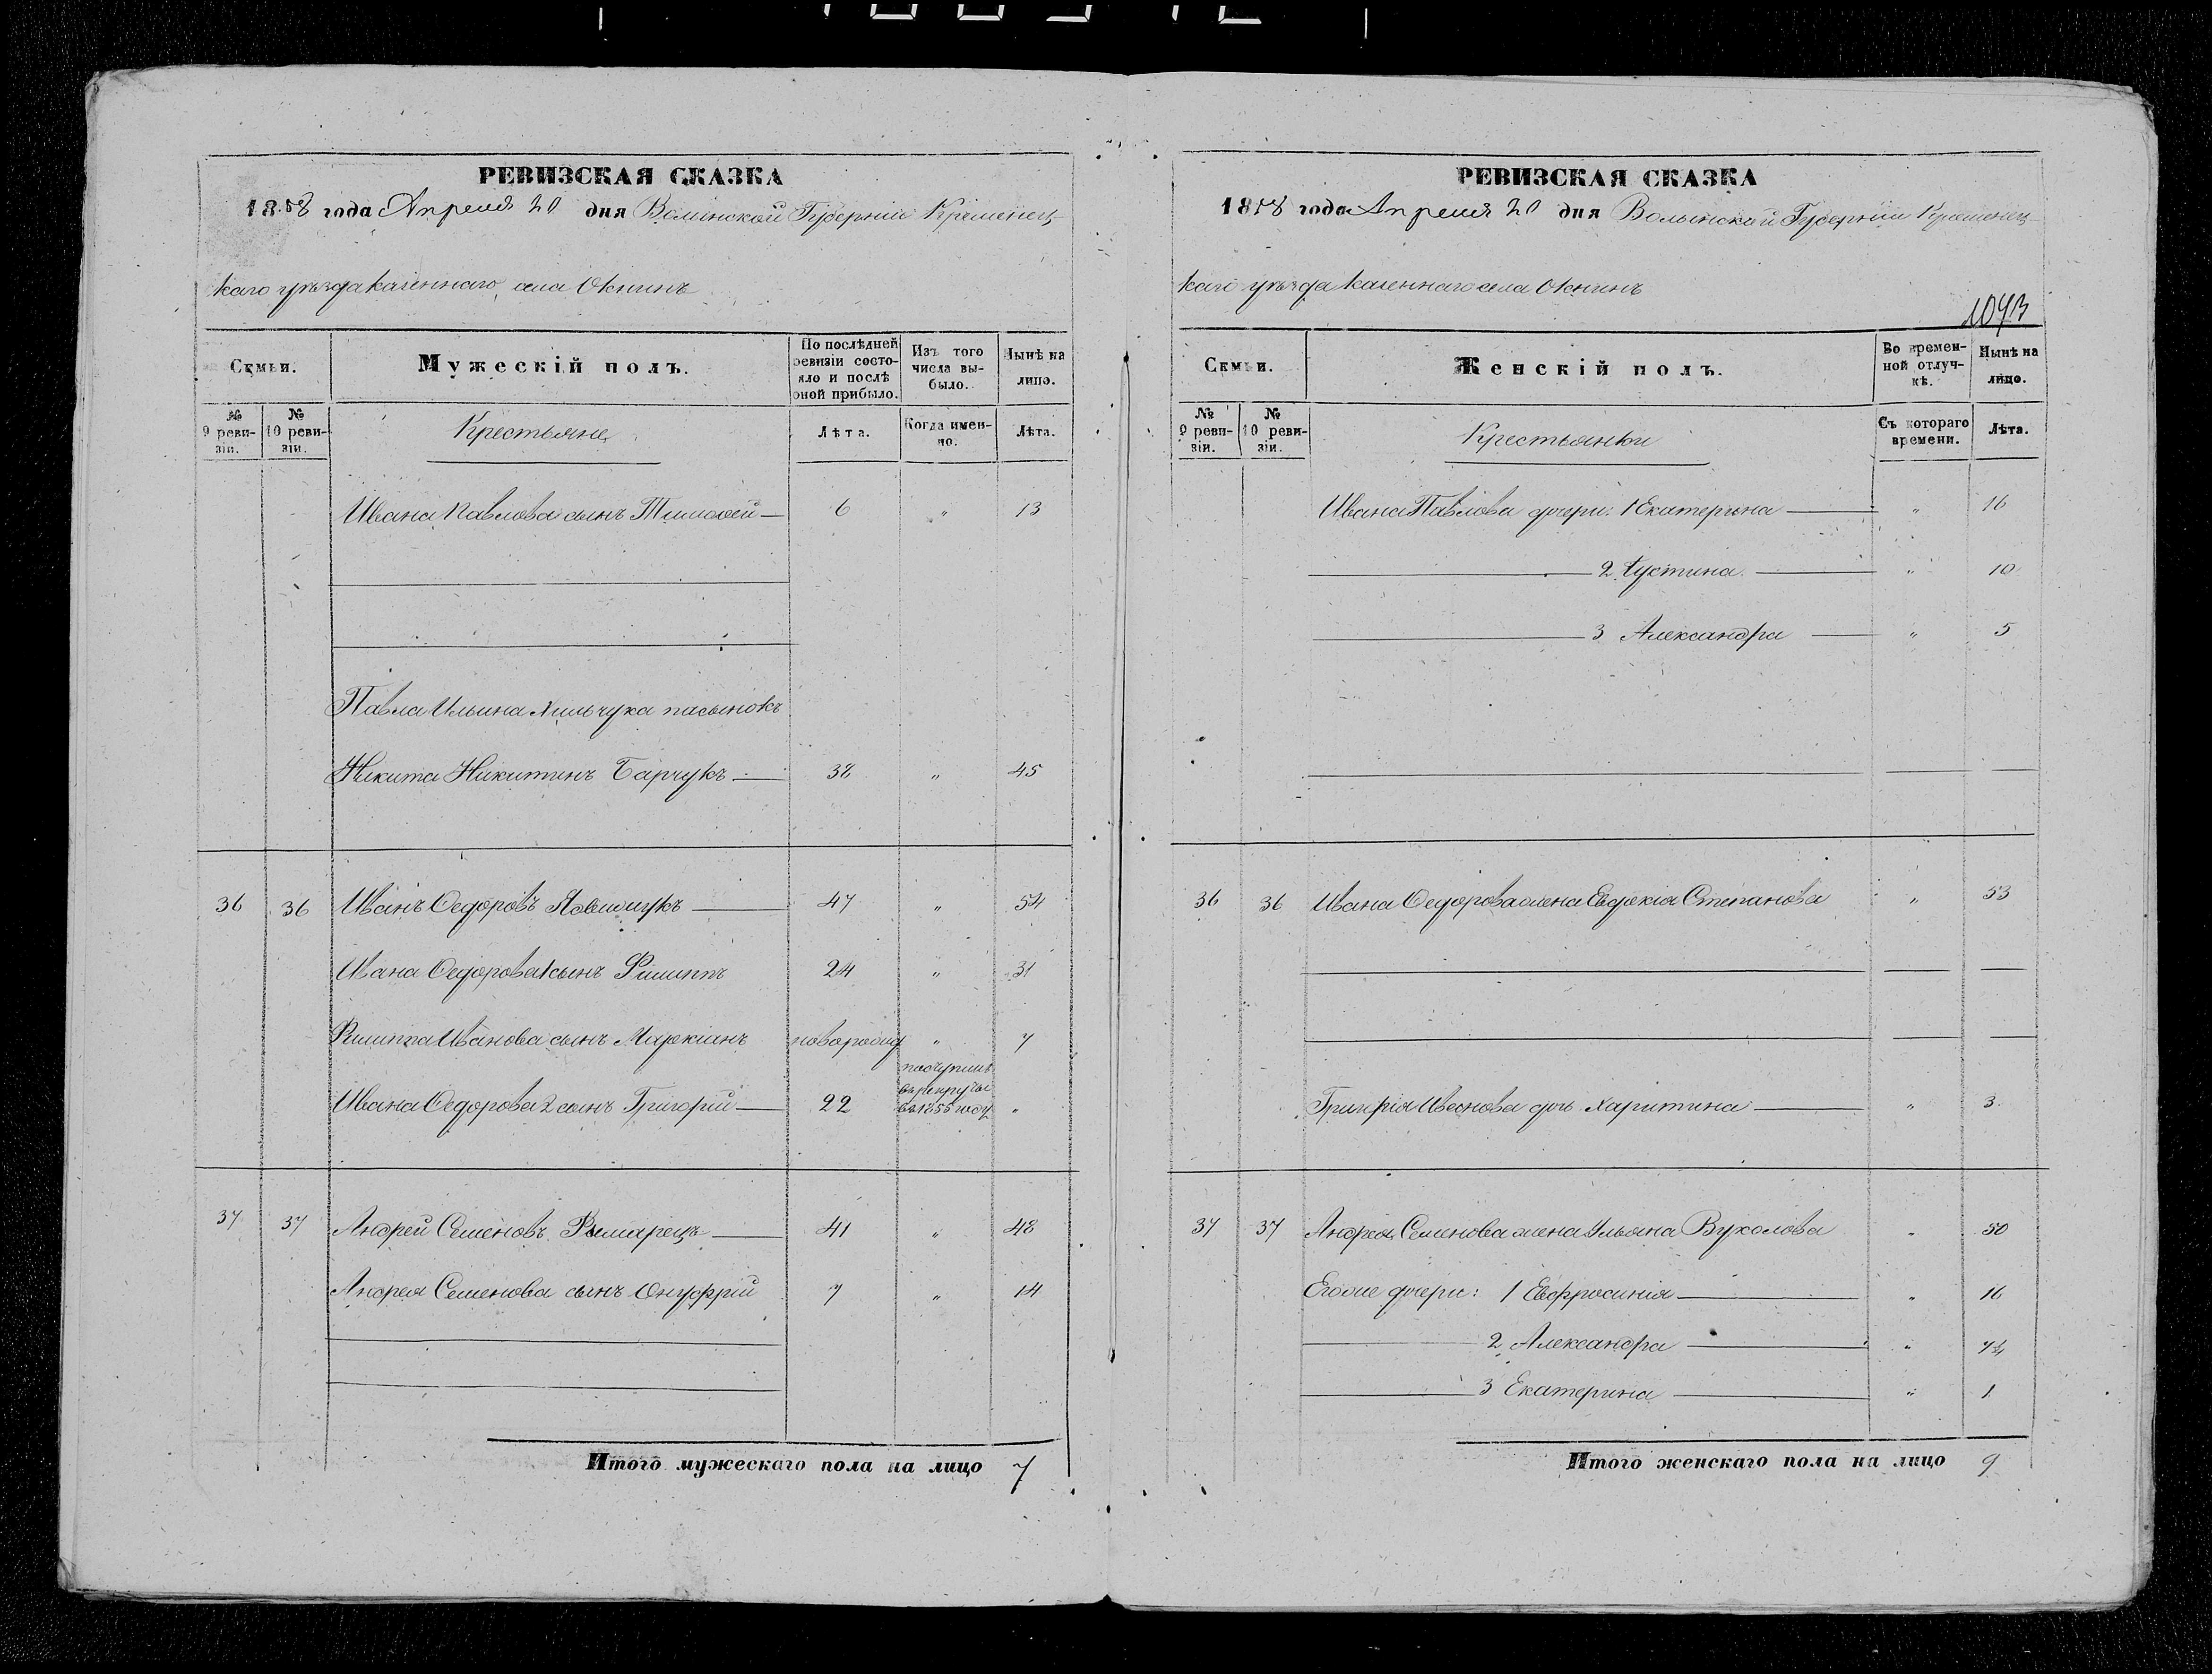 РЕВИЗСКАЯ СКАЗКА
1858 года Апреля 20 дня Волинской Губерніи Кременец
каго уѣзда казеннаго села Окнинъ
Семьи.
Мужескій полъ.
По послѣдней ревизіи состояло и послѣ оной прибыло.
Изъ того числа выбыло.
Нынѣ на лицо.
№ 9 ревизіи.
№ 10 ревизіи.
Крестьяне
Лѣта.
Когда именно.
Лѣта.
Ивана Павлова сынъ Тимофей 6 " 13
Павла Ильина пасынокъ
Никита Никитинъ 38 " 45
36 36 Иванъ Федоровъ 47 " 54
Ивана Федорова 1 сынъ Филиппъ 24 " 31
Филиппа Иванова сынъ Маркіанъ новорожд " 7
Ивана Федорова 2 сынъ Григорій 22 поступилъ в рекруты въ 1855 году "
37 37 Андрей Семеновъ Рымарецъ 41 " 48
Андрея Семенова сынъ Онуфрій 7 " 14
Итого мужескаго пола на лицо 7
РЕВИЗСКАЯ СКАЗКА
1858 года Апреля 20 дня Волынской Губерніи Кременец
каго уѣзда казеннаго села Окнинъ
Семьи.
Женскій полъ.
Во временной отлучкѣ.
Нынѣ на лицо.
№ 9 ревизіи.
№ 10 ревизіи.
Крестьянки
Съ котораго времени.
Лѣта.
Ивана Павлова дочери: 1 Екатерина " 16
2 Іустина " 10
3 Александра " 5
36 36 Ивана Федорова жена Евдокія Степанова " 53
Григорія Иванова дочь Харитина " 3
37 37 Андрея Семенова жена Ульяна Вуколова " 50
Егоже дочери: 1 Евфросинія " 16
2 Александра "
3 Екатерина " 1
Итого женскаго пола на лицо 9